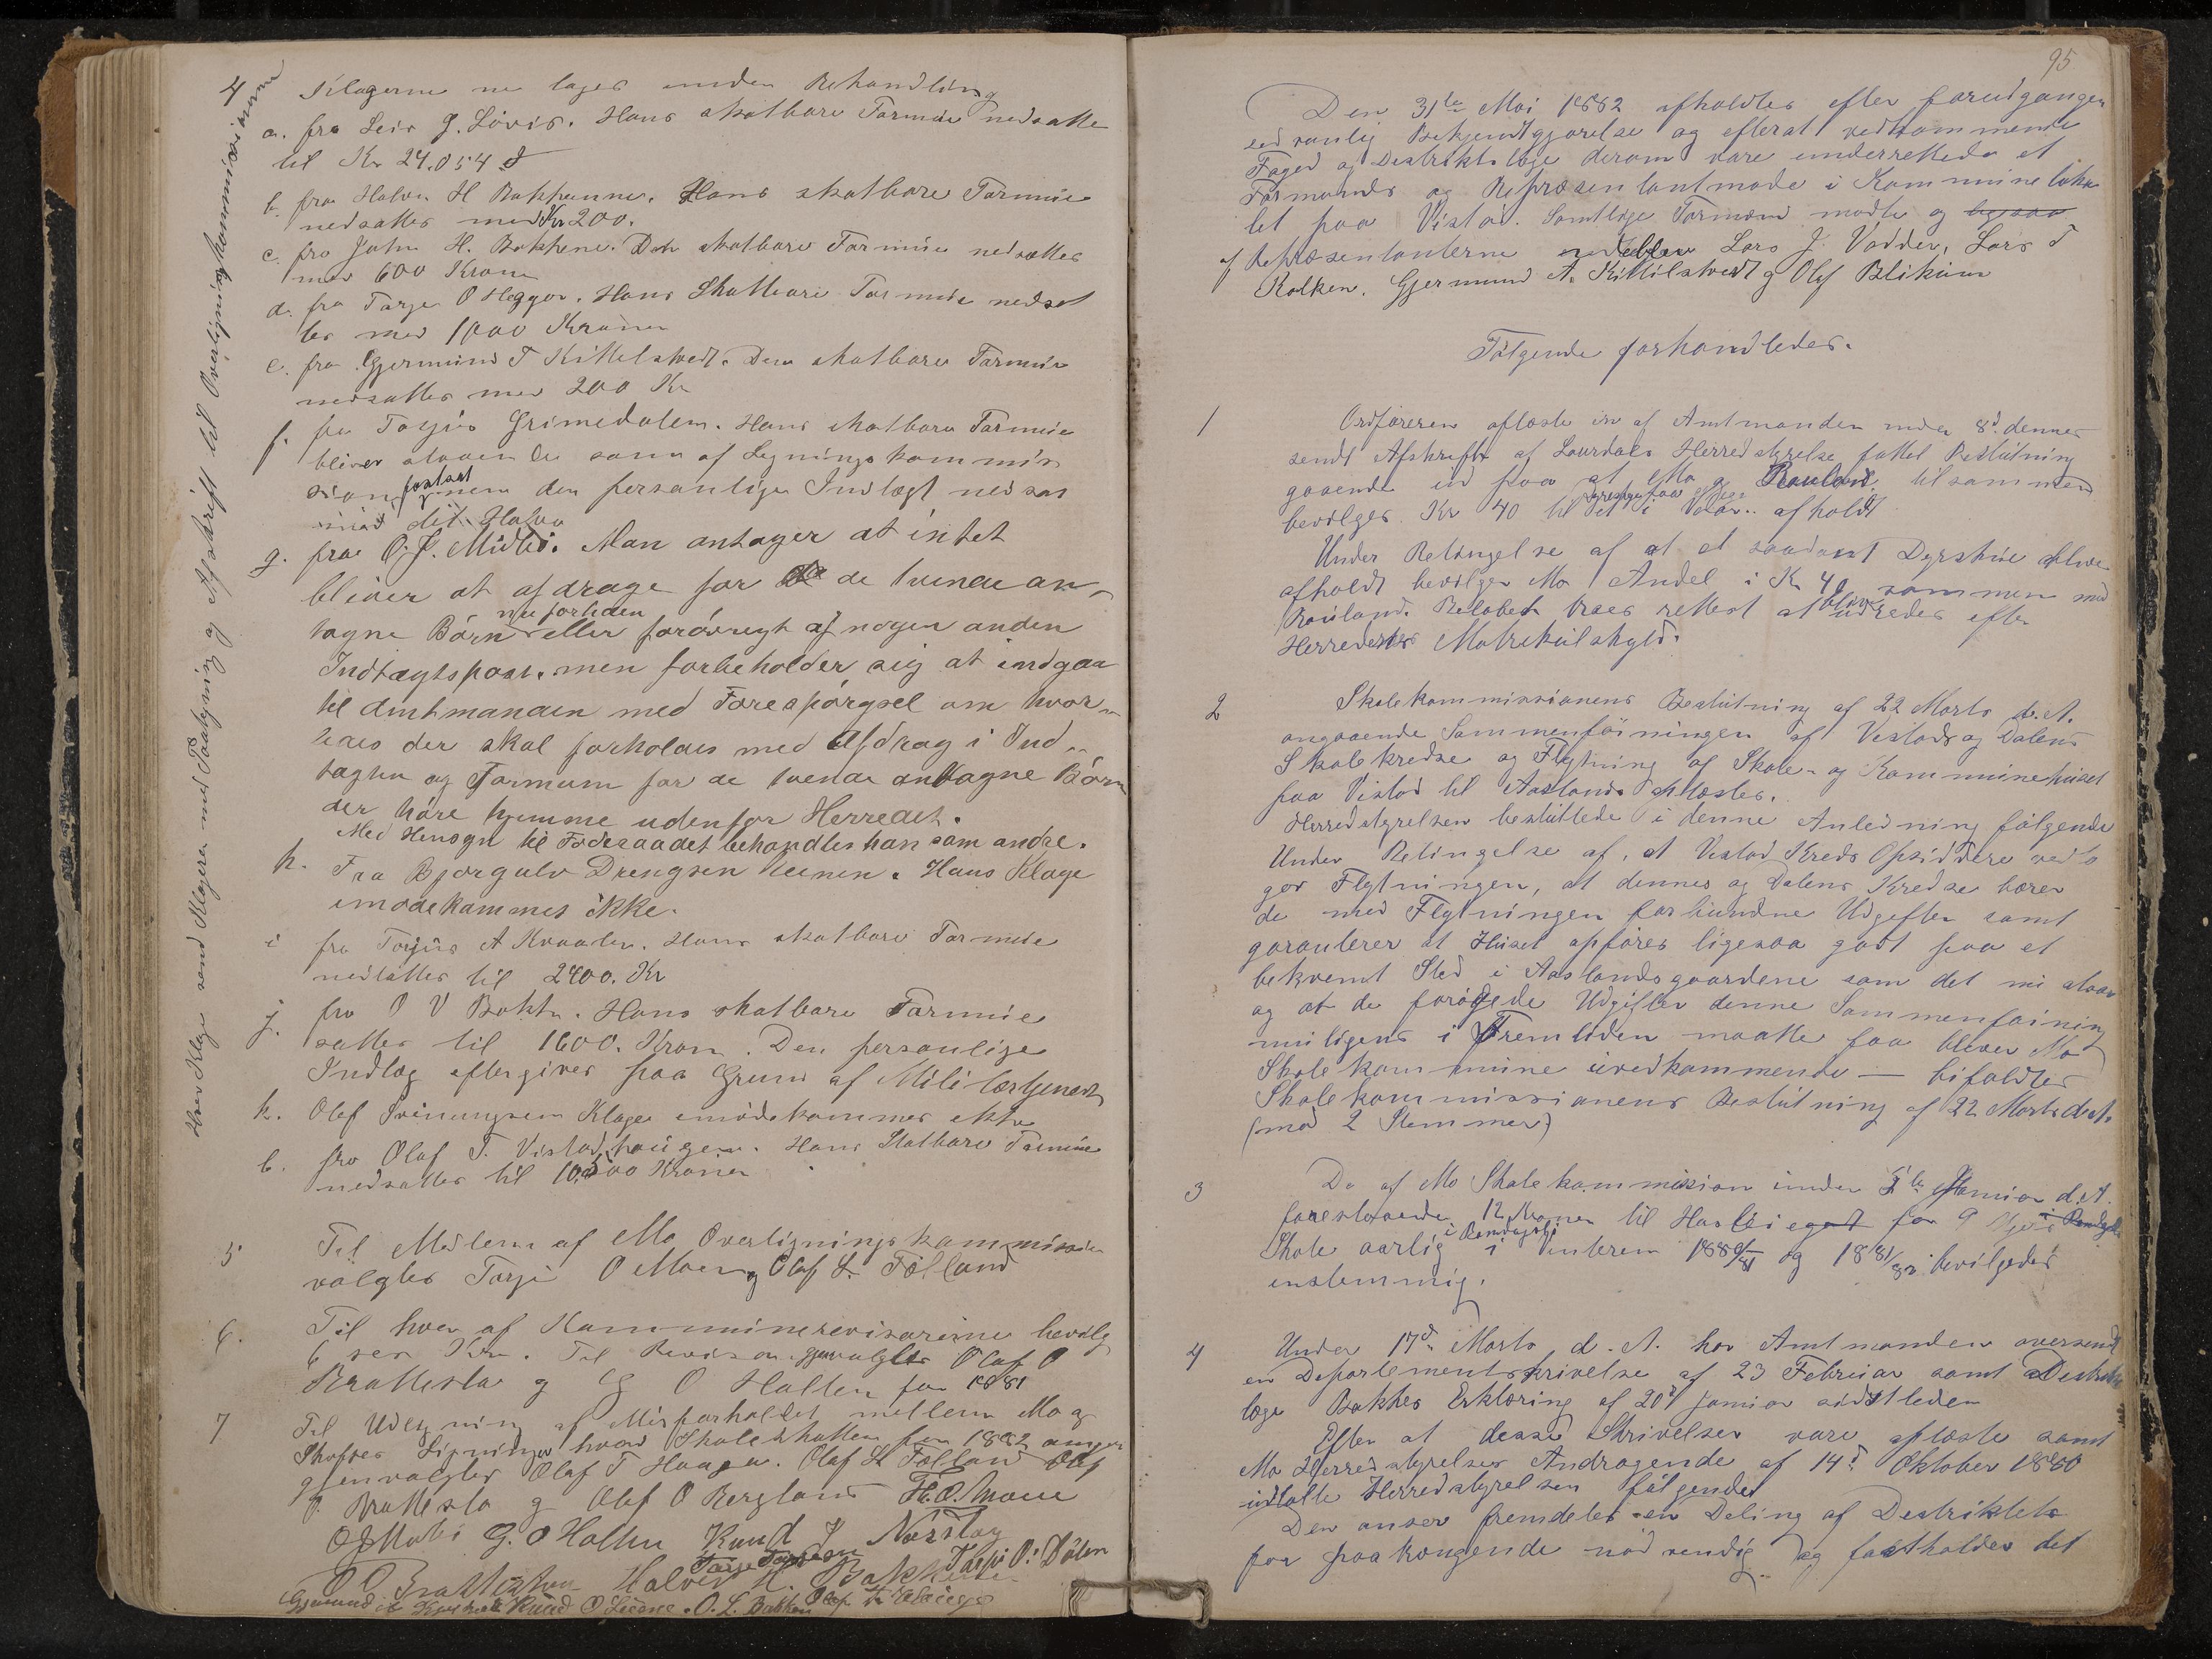 4 Klagerne ne toges under Behandling
a. fra Leiv G. Lövis. Hans skatbare Formue nedsatte
til Kr 24.054
b. fra Halvor H Bakkhunne. Hans skatbare Formue
nedsattes med Kr 200.
c. fra John H. Bakkhene. Den skatbare Formue nedsættes
med 600 Kroner
d. fra Torje O Heggov. Hans Skatbare Formue nedsat
tes med 1000 Kroner
e. fra Gjermund T Kittelstved. Den skatbare Formue
nedsattes med 200 Kr
f. fra Torjus Grimedalen. Hans skatbare Formue
bliver staaende som af Ligningskommis
sion fastsat men den personlige Indtægt nedsat
med det Halve
g. fra O. J. Midbö. Man antager at intet
bliver at afdrage for de tvende an-
tagne Börn nu fortiden eller forövrigt af nogen anden
Indtægtspost. men forbeholder sig at indgaa
til Amtmanden med Forespörgsel om hvor-
ledes der skal forholdes med Afdrag i Ind-
tægten og Formuen for de tvende antagne Börn
der höre hjemme udenfor Herredet.
Med Hensyn til Föderaadet behandles han som andre.
h. Fra Bjorgulv Drengsen Heimen. Hans Klage
imödekommes ikke.
i fra Torjus A Kvaalen. Hans skatbare Formue
nedsattes til 2400. Kr
j. fra O V Bakke. Hans skatbare Formue
sattes til 1600. Kron. Den personlige
Indtæg eftergives paa Grund af Militærtjeneste
k. Olef Sveinungsen Klage imödekommes ikke
l. fra Olaf T. Vistadhaugen. Hans Skatbare Formue
nedsattes til 10,500 Kroner
5 Til Medlem af Mo Overligningskommission
valgtes Torje O Moen og Olaf L. Folland
6. Til hver af Kommunerevisorerne bevilg
6 sex Kr. Til Revisor gjenvalgtes Olaf O
Brattestø og G O Halten for 1881
7 Til Udligning af Misforholdet mellem Mo og
Skafses Ligninger hvad Skoleskatten for 1882 angaar
gjenvalgtes Olaf T Haagen. Olaf H Folland Olaf
O. Brattestø og Olaf O Bergland H. O. Moen
G. O Halten Knud J Norstog
Halvor H. Bakkhene Torje O. Dölen
Knud O Liedne. O. L. Bakken
Hver Klage send Klagere med Paategning og Afskrift til Overligningskommissionerne
95
Den 31te Mai 1882 afholdtes efter forudgangen
sedvanlig Bekjendtgjørelse og efterat vedkommende
Foged og Destriktslæge derom vare underrettede et
Formands og Repræsentantmøde i Kommuneloka
let paa Vistad. Samtlige Formænd mødte og ligesaa
af Repræsentanterne Lars J. Vadder, Lars T
Kolken. Gjermund A. Kittilstved og Olef Blikum
Følgende forhandledes.
1 Ordføreren oplæste en af Amtmanden under 8d. dennes
sendt Afskrift af Laurdals Herredstyrelse fattet Beslutning
gaaende ud paa at Mo og Rauland tilsammen
bevilger Kr 40 til et i Vaar afholdt
Under Betingelse af at et saadant Dyrskue blive
afholdt bevilger Mo Andel i Kr 40 sammen med
Rauland. Beløbet troes rettest at blive udredes efter
Herredernes Matrikulskyld.
2 Skolekommissionens Beslutning af 22 Marts d. A.
angaaende Sammenføiningen af Vistads og Dalens
Skolekredse og Flytning af Skole- og Kommunehuset
paa Vistad til Aasland oplæstes.
Herredstyrelsen besluttede i denne Anledning følgende
Under Betingelse af, at Vistad Kreds Opsiddere vedta
ger Flytningen, at dennes og Dalens Kredse bærer
de med Flytningen forbundne Udgifter samt
garanterer at Huset opføres ligesaa godt paa et
bekvemt Sted i Aaslandsgaardene som det nu staar
og at de forøgede Udgifter denne Sammenføining
muligens i Fremtiden maatte faa bliver Mo
Skolekommune uvedkommende — bifaldtes
Skolekommissionens Beslutning af 22 Marts d. A.
(mod 2 Stemmer)
3 De af Mo Skolekommission under Januar d. A.
foreslaaede 12 Kroner til Husleie for
Skole aarlig i Vinteren 1880/81 og 1881/82 bevilgedes
enstemmig.
4 Under 17d. Marts d. A. har Amtmanden oversendt
en Departementsskrivelse af 23 Februar samt Destrikts
læge Bakkes Erklæring af 20d Januar sidstleden
Efter at desse Skrivelser vare oplæste samt
Mo Herredstyrelses Andragende af 14d. Oktober 1880
udtalte Herredstyrelsen følgende
Den anser fremdeles en Deling af Destriktet
for paatrængende nødvendig og fastholder det